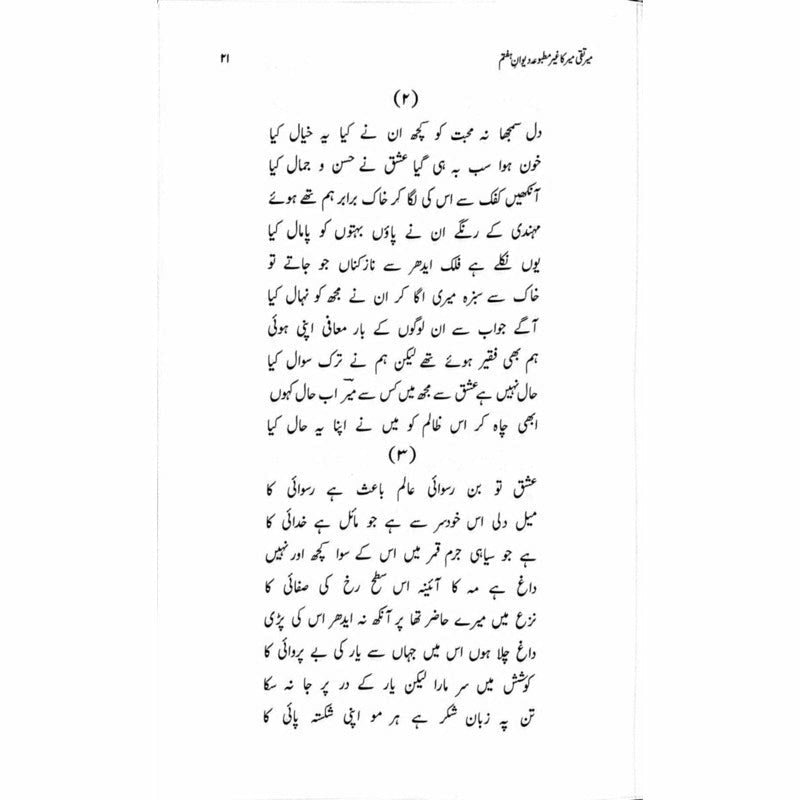 میر تقی میر کا غیر مطبوعہ دیوانِ ہفتم ۲۱
(۲)
دل سمجھا نہ محبت کو کچھ ان نے کیا یہ خیال کیا
خون ہوا سب بہ ہی گیا عشق نے حسن و جمال کیا
آنکھیں کفک سے اس کی لگا کر خاک برابر ہم تھے ہوئے
مہندی کے رنگے ان نے پاؤں بہتوں کو پامال کیا
یوں نکلے ہے فلک ایدھر سے نازکناں جو جاتے تو
خاک سے سبزہ میری اگا کر ان نے مجھ کو نہال کیا
آگے جواب سے ان لوگوں کے بار معافی اپنی ہوئی
ہم بھی فقیر ہوئے تھے لیکن ہم نے ترک سوال کیا
حال نہیں ہے عشق سے مجھ میں کس سے میرؔ اب حال کہوں
ابھی چاہ کر اس ظالم کو میں نے اپنا یہ حال کیا
(۳)
عشق تو بن رسوائی عالم باعث ہے رسوائی کا
میل دلی اس خودسر سے ہے جو مائل ہے خدائی کا
ہے جو سیاہی جرم قمر میں اس کے سوا کچھ اور نہیں
داغ ہے مہ کا آئینہ اس سطح رخ کی صفائی کا
نزع میں میرے حاضر تھا پر آنکھ نہ ایدھر اس کی پڑی
داغ چلا ہوں اس میں جہاں سے یار کی بے پروائی کا
کوشش میں سر مارا لیکن یار کے در پر جا نہ سکا
تن پہ زبان شکر ہے ہر مو اپنی شکستہ پائی کا